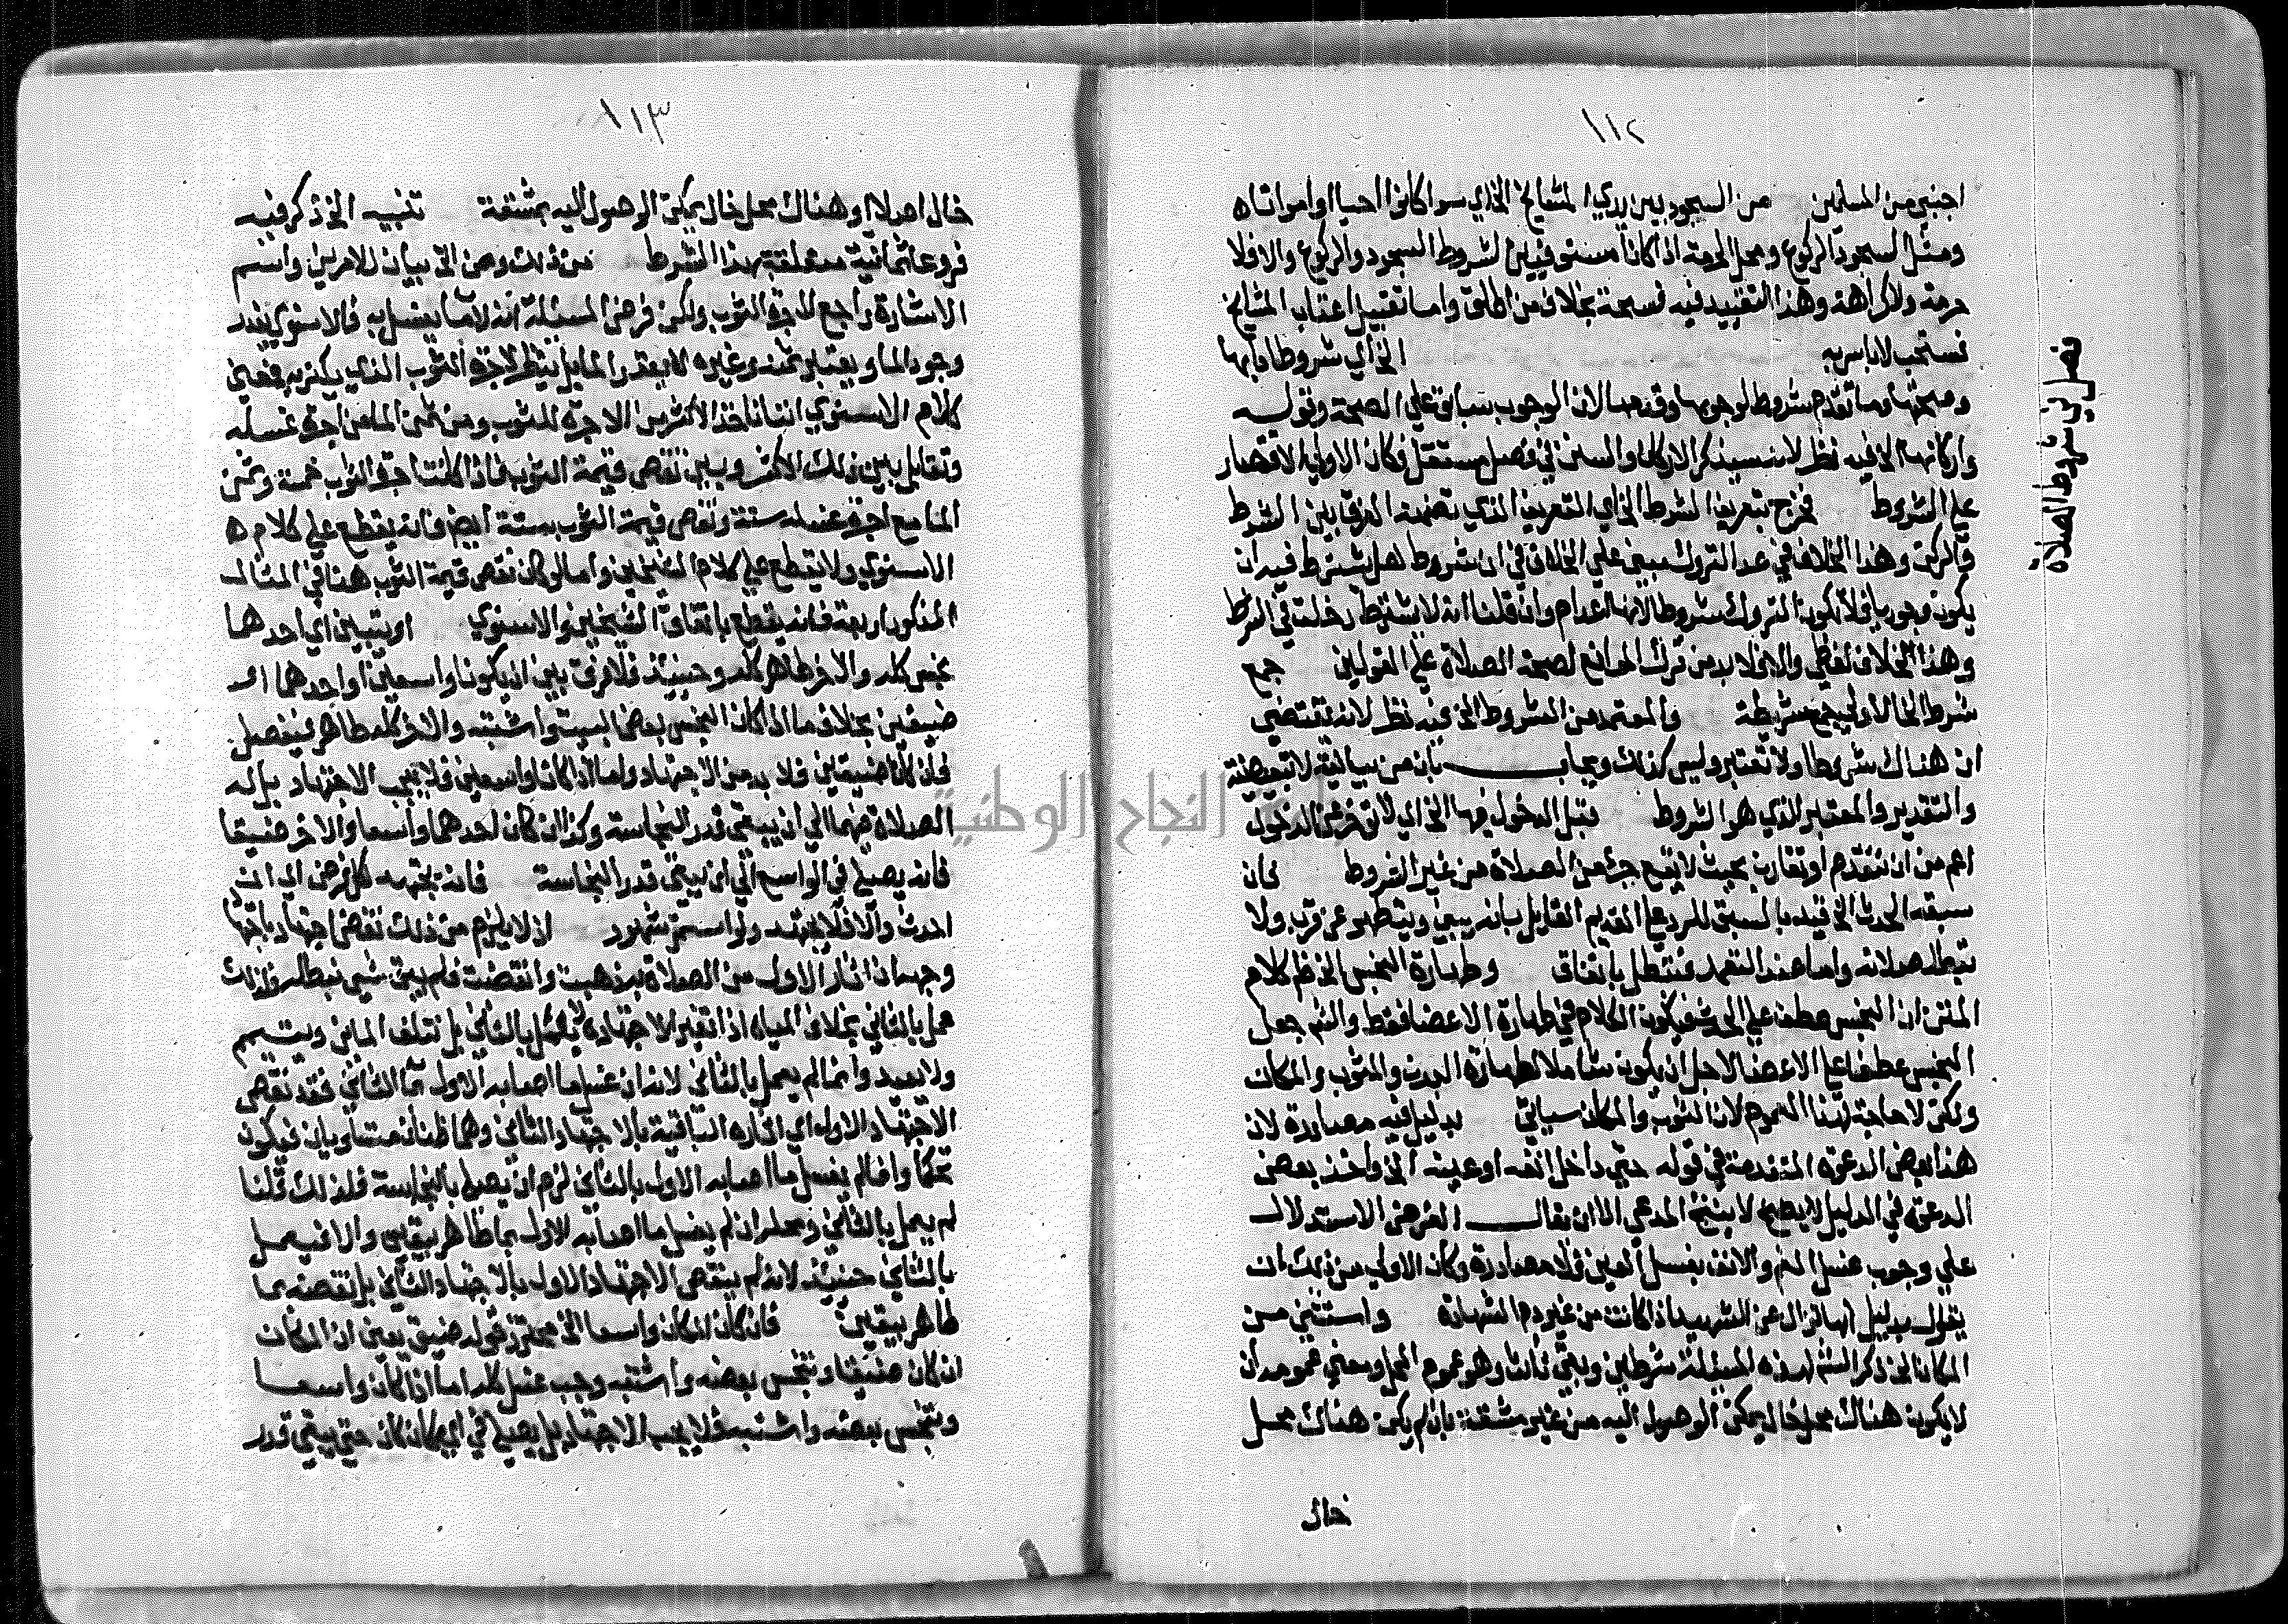 ١١٢
اجنبي من المسلمين من السجود بين يدي المشايخ الخ اي سوا كانوا احيا او امواتا ه
ومثل السجود الركوع ومحل الحرمة اذا كانا مستوفيين لشروط السجود والركوع والا فلا
حرمة ولا كراهة وهذا التقييد فيه فسحة بخلاف من اطلق واما تقبيل اعتاب المشايخ
فستحب لا باس به الخ اي شروط ادايها
وصحتها وما تقدم شروط لوجوبها وقدمها لان الوجوب سابق علي الصحة وقوله
واركانها الخ فيه نظر لانه سيذكر الاركان والسنن في فصل مستقل فكان الاولي الاقتصار
علي الشروط فخرج بتعريف الشرط الخ اي التعريف الذي تضمنه الفرق بين الشرط
والركن وهذا الخلاف في عد التروك مبني علي الخلاف في ان شروط هل يشترط فيه ان
يكون وجوديا فلا تكون التروك شروطا لانها اعدام وان قلنا انه لا يشترط دخلت في الشرط
وهذا الخلاف لفظي والا فلا بد من ترك الموانع لصحة الصلاة علي القولين جمع
شرط الخ الاولي جمع شريطة والمعتمد من الشروط الخ فيه نظر لانه يقتضي
ان هناك شروطا ولا تعتبر وليس كذلك ويجاب بان من بيانية لا تبعيضية
والتقدير والمعتبر الذي هو الشروط قبل الدخول فيها الخ اي لا في خر عن الدخول
اعم من ان تتقدم او تقارن بحيث لا يقع جزء من الصلاة من غير الشروط فان
سبقه الحدث الخ قيد بالسبق للرد علي القديم القايل بانه يبني ويتطهر عن قرب ولا
تبطل صلاته واما عند التعمد فتبطل باتفاق وطهارة النجس الخ ظ كلام
المتن ان النجس عطف علي الحدث فيكون الكلام في طهارة الاعضا فقط والشم جعل
النجس عطفا علي الاعضا لاجل ان يكون شاملا لطهارة البدن والثوب والمكان
ولكن لا حاجة لهذا العموم لان الثوب والمكان سياتي بدليل فيه مصادرة لان
هذا بعض الدعوة المتقدمة في قوله حتي داخل انفه او عينه الخ واخذ بعض
الدعوة في الدليل لا يصح لا ينتج المدعي الا ان يقال الغرض الاستدلال
علي وجوب غسل الفم والانف بغسل العين فلا مصادرة وكان الاولي من ذلك ان
يقول بدليل انها تزال عن الشهيد اذا كانت من غير دم الشهادة واستثني من
المكان الخ ذكر الشم لهذه المسئلة شرطين وبقي ثالث وهو عموم المحل ومعني عمومه ان
لا يكون هناك محل خال يمكن الوصول اليه من غير مشقة بان لم يكن هناك محل
خال
فصل في شروط الصلاة
١١٣
خال اصلا او هناك محل خال يمكن الوصول اليه بمشقة تنبيه الخ ذكر فيه
فروعا ثمانية متعلقة بهذا الشرط من ذلك ومن الخ بيان للامرين واسم
الاشارة راجع لاجرة الثوب ولكن فرض المسئلة انه لا ما يغسل به فالاسنوي يقدر
وجود الما ويعتبر ثمنه وغيره لا يقدر الما بل ينظر لاجرة الثوب الذي يكتري به فمعني
كلام الاسنوي اننا ناخذ الاكثر من الاجرة للثوب ومن ثمن الما مع اجرة غسله
وتقابل بين ذلك الاكثر وبين نقص قيمة الثوب فاذا كانت اجرة الثوب خمسة وثمن
الما مع اجرة غسله ستة ونقص قيمة الثوب بستة ايضا فانه يقطع علي كلام ه
الاسنوي ولا يقطع علي كلام الشيخين واما لو كان نقص قيمة الثوب هنا في المثال
المذكور اربعة فانه يقطع باتفاق الشيخين والاسنوي او يتبين اي احدهما
نجس كله والاخر طاهر كله وحينئذ فلا فرق بين ان يكونا واسعين او احدهما او
ضيقين بخلاف ما اذا كان النجس بعض البيت واشتبه والاخر كله طاهر فيفصل
فان كانا ضيقين فلا بد من الاجتهاد واما اذا كانا واسعين فلا يجب الاجتهاد بل له
الصلاة فيهما الي ان يبقي قدر النجاسة وكذا ان كان احدهما واسعا والاخر ضيقا
فانه يصلي في الواسع الي ان يبقي قدر النجاسة فانه يجتهد لكل فرض اي ان
احدث والا فلا يجتهد ولو استمر شهور اذ لا يلزم من ذلك نقض اجتهاد باجتهاد
وجهه ان اثار الاول من الصلاة به ذهبت وانقضت فلم يبق شي يبطل ولذلك
عمل بالثاني بخلاف المياه اذا تغير الاجتهاد لا يعمل بالثاني بل تتلف الماين ويتيمم
ولا يعيد وانما لم يعمل بالثاني لانه ان غسل ما اصابه الاول بما الثاني فقد نقض
الاجتهاد الاول اي اثاره الباقية بالاجتهاد الثاني وهما ظنان متساويان فيكون
تحكما وان لم يغسل ما اصابه الاول بالثاني لزم ان يصلي بالنجاسة فلذلك قلنا
لم يعمل بالثاني ومحله ان لم يغسل ما اصابه الاول بما طاهر بيقين والا فيعمل
بالثاني حينئذ لانه لم ينقض الاجتهاد الاول بالاجتهاد الثاني بل نقضه بما
طاهر بيقين فان كان المكان واسعا الخ محترز قوله ضيق يعني ان المكان
ان كان ضيقا وتنجس بعضه واشتبه وجب غسل كله اما اذا كان واسعا
وتنجس بعضه واشتبه فلا يجب الاجتهاد بل يصلي في اي مكان كان حتي يبقي قدر
جامعة النجاح الوطنية